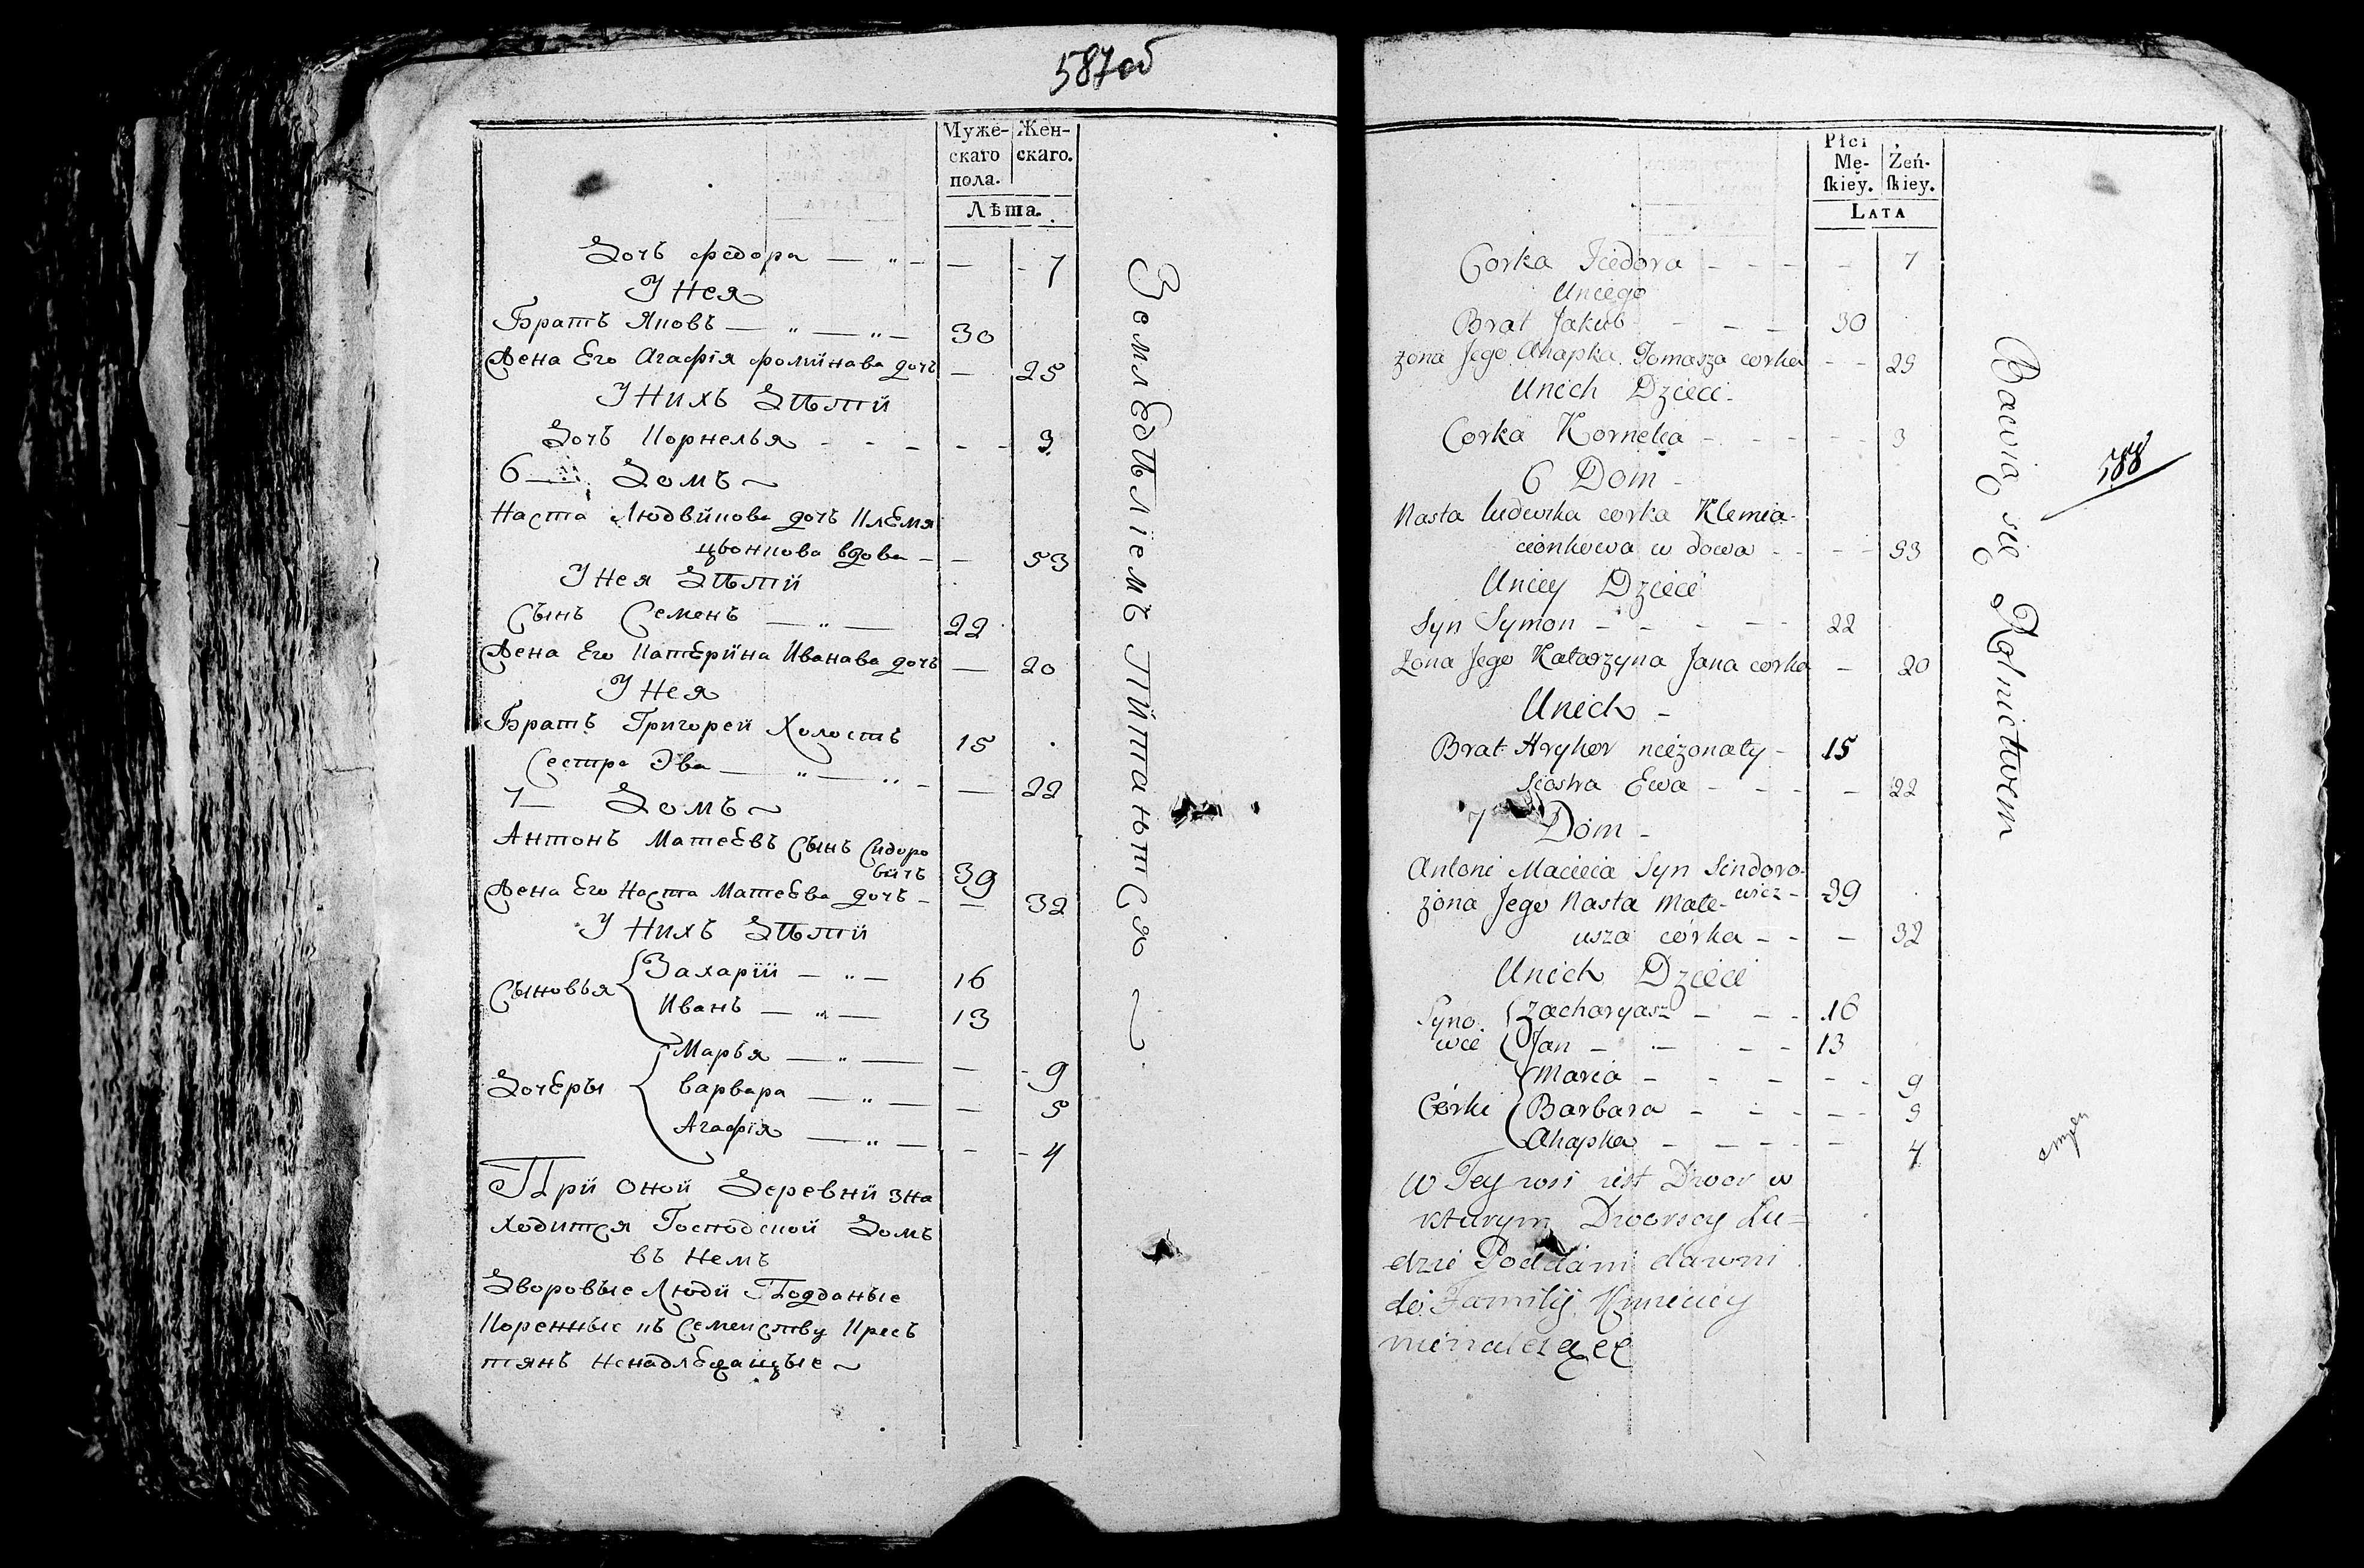 587об
Муже-
скаго
пола.
Жен-
скаго.
Лѣта.
Дочь федора — „ — — 7
У Нея
Братъ Яковъ — „ — „ — 30
Жена Его Агафiя фоминава дочь — 25
У Нихъ Дѣти
Дочь Корнелья - - - - - 3
6 — Домъ ~
Наста Людвикова дочь Клемя
цьонкова вдова — — 53
У Нея Дѣти
Сынъ Семенъ — „ — 22
Жена Его Катерина Иванава дочь — 20
У Нея
Братъ Григорей Холостъ 15
Сестра Эва — „ — „ — — 22
7 — Домъ ~
Антонъ Матеевъ Сынъ Сидоро
вичъ 39
Жена Его Наста Матеева дочь — — 32
У Нихъ Дѣти
Сыновья { Захарiй — „ — 16
Иванъ — „ — 13
Дочеры { Марья — „ — — - 9
варвара — „ — — 5
Агафiя — „ — - - 4
При оной Деревни зна
ходится Господской Домъ
въ немъ
Дворовые Люди Подданые
Коренные къ Семейству Крес
тянъ ненадлежащые ~
Земледѣлiемъ Питаются ~
Płci
Mę-
ſkiey.
Żeń-
ſkiey.
LATA
Corka Fiedora - - - - 7
Uniego
Brat Jakub - - - 30
żona Jego Ahapka Tomasza corka - - 25
Unich Dzieci -
Corka Kornelia - - - - - 3
6 Dom -
Nasta ludwika corka Klemia-
cionkowa w dowa - - - - 53
Uniey Dzieci
Syn Symon - - - - - 22
żona Jego Katarzyna Jana corka - 20
Unich -
Brat Hryhor nieżonaty - 15
Siostra Ewa - - - - 22
7 Dom -
Antoni Macieia Syn Sindoro-
wicz - 39
żona Jego Nasta Mate-
usza córka - - - 32
Unich Dzieci
Syno-
wie { Zacharyasz - - - 16
Jan - - - - 13
Córki { Maria - - - - - 9
Barbara - - - - - 5
Ahapka - - - - - 4
W Tey wsi iest Dwor w
kturym Dworscy Lu-
dzie Poddani dawni
do Familij Kmieciey
nienależącę
Bawią się Rolnictwem
588